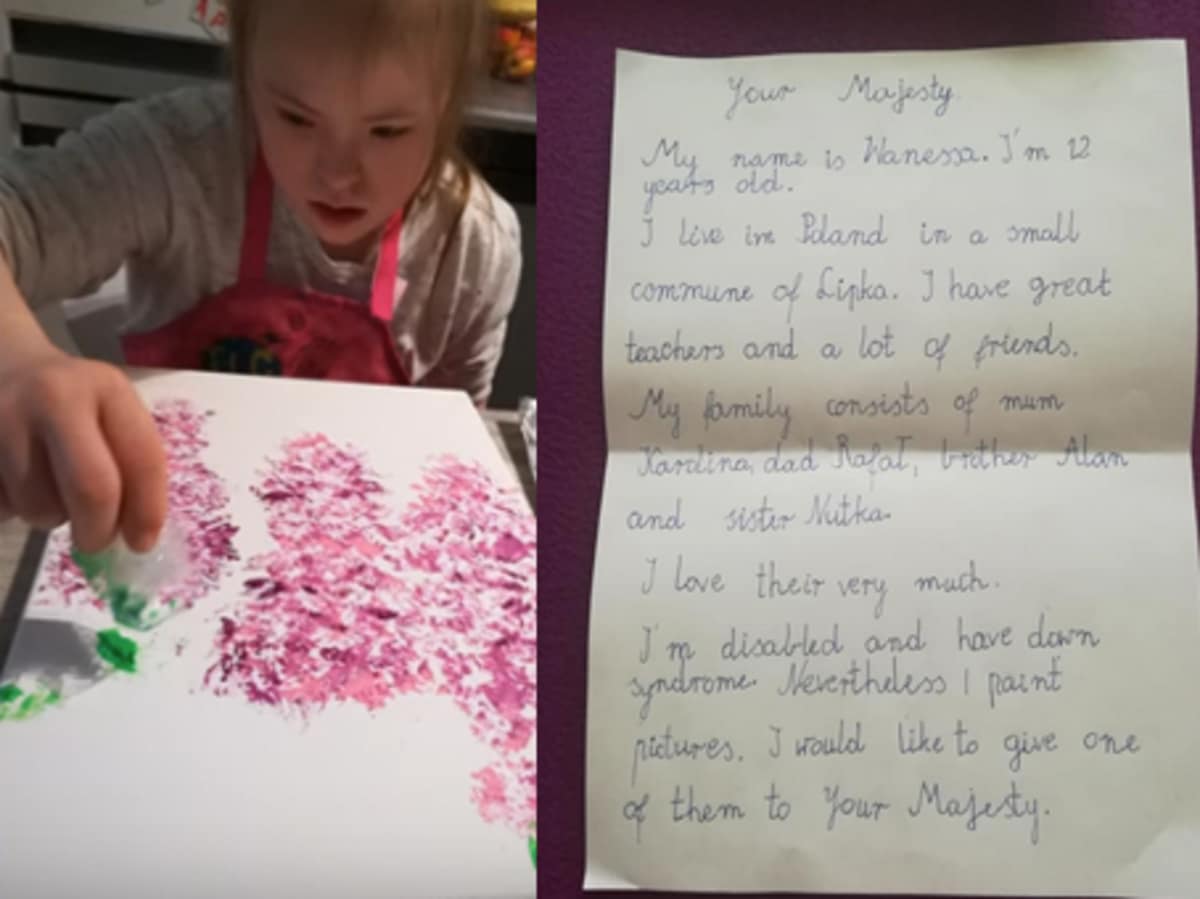 Your Majesty.
My name is Wanessa. I'm 12
years old.
I live in Poland in a small
commune of Lipka. I have great
teachers and a lot of friends.
My family consists of mum
Karolina, dad Rafał, brother Alan
and sister Nutka.
I love their very much.
I'm disabled and have down
syndrome. Nevertheless I paint
pictures. I would like to give one
of them to Your Majesty.